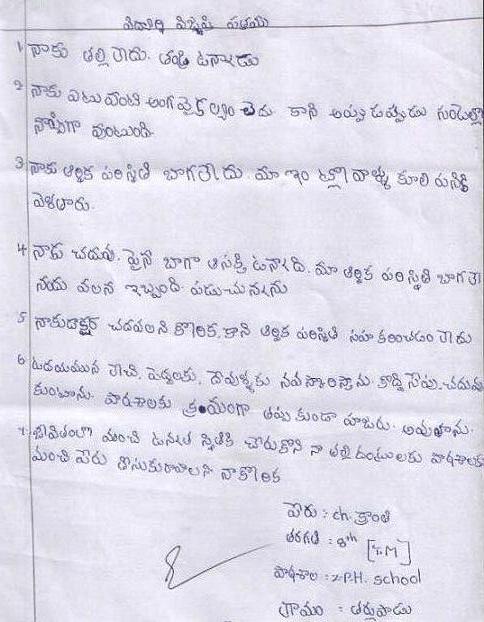 విద్యార్థి విజ్ఞప్తి పత్రము
1 నాకు తల్లి లేదు. తండ్రి ఉన్నాడు
2 నాకు ఎటువంటి అంగవైకల్యం లేదు కాని అప్పుడప్పుడు గుండెల్లో
నొప్పిగా వుంటుంది.
3 నాకు ఆర్థిక పరిస్థితి బాగలేదు. మా ఇంట్లో వాళ్ళు కూలి పనికి
వెళతారు.
4 నాకు చదువు పైన బాగా ఆసక్తి ఉన్నది. మా ఆర్థిక పరిస్థితి బాగలే
నందు వలన ఇబ్బంది పడుచున్నాను
5 నాకు డాక్టర్ చదవలని కోరిక. కాని ఆర్థిక పరిస్థితి సహకరించడం లేదు
6 ఉదయమున లేచి, పెద్దలకు, దేవుళ్ళకు నమస్కారిస్తాను. కొద్ది సేపు చదువు
కుంటాను. పాఠశాలకు క్రమంగా తప్పకుండా హాజరు అవుతాను.
7 జీవితంలో మంచి ఉన్నత స్థితికి చేరుకొని నా తల్లిదండ్రులకు పాఠశాలకు
మంచి పేరు తీసుకురావాలని నా కోరిక
పేరు : ch. క్రాంతి
తరగతి : 8th [T.M]
పాఠశాల : Z.P.H. School
గ్రామం :